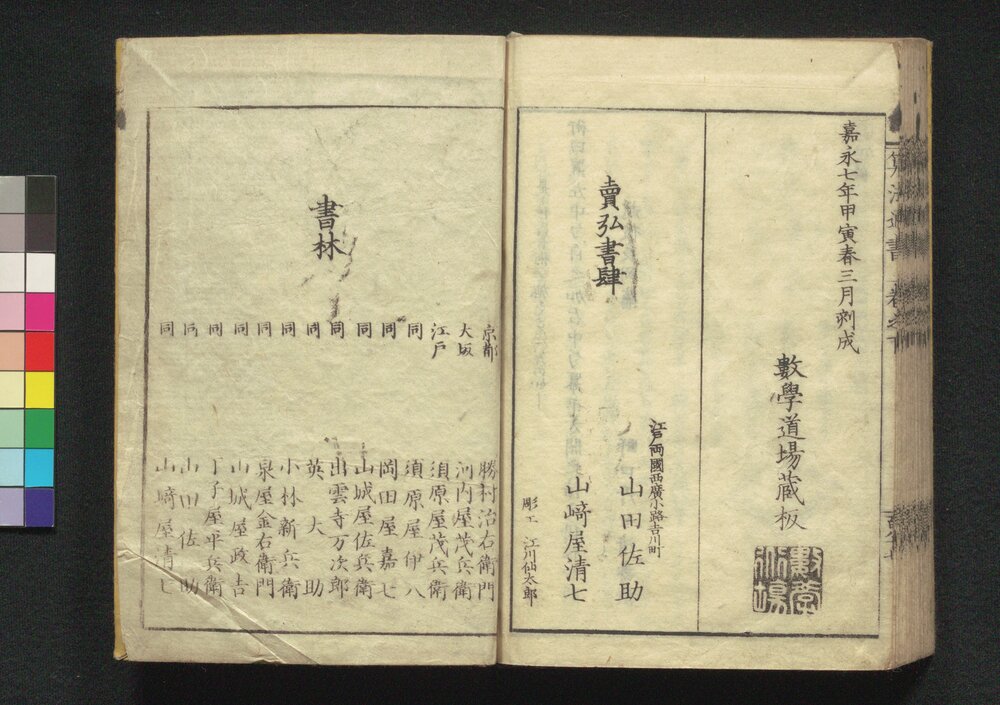 嘉永七年甲寅春三月刻成
數學道場蔵板
賣弘書肆
江戸両國西廣小路吉川町
山田佐助
山﨑屋清七
彫工 江川仙太郎
書林
京都 勝村治右衛門
大坂 河内屋茂兵衛
江戸 須原屋茂兵衛
同 須原屋伊八
同 岡田屋嘉七
同 山城屋佐兵衛
同 出雲寺万次郎
同 英大助
同 小林新兵衛
同 泉屋金右衛門
同 山城屋政吉
同 丁子屋平兵衛
同 山田佐助
同 山﨑屋清七